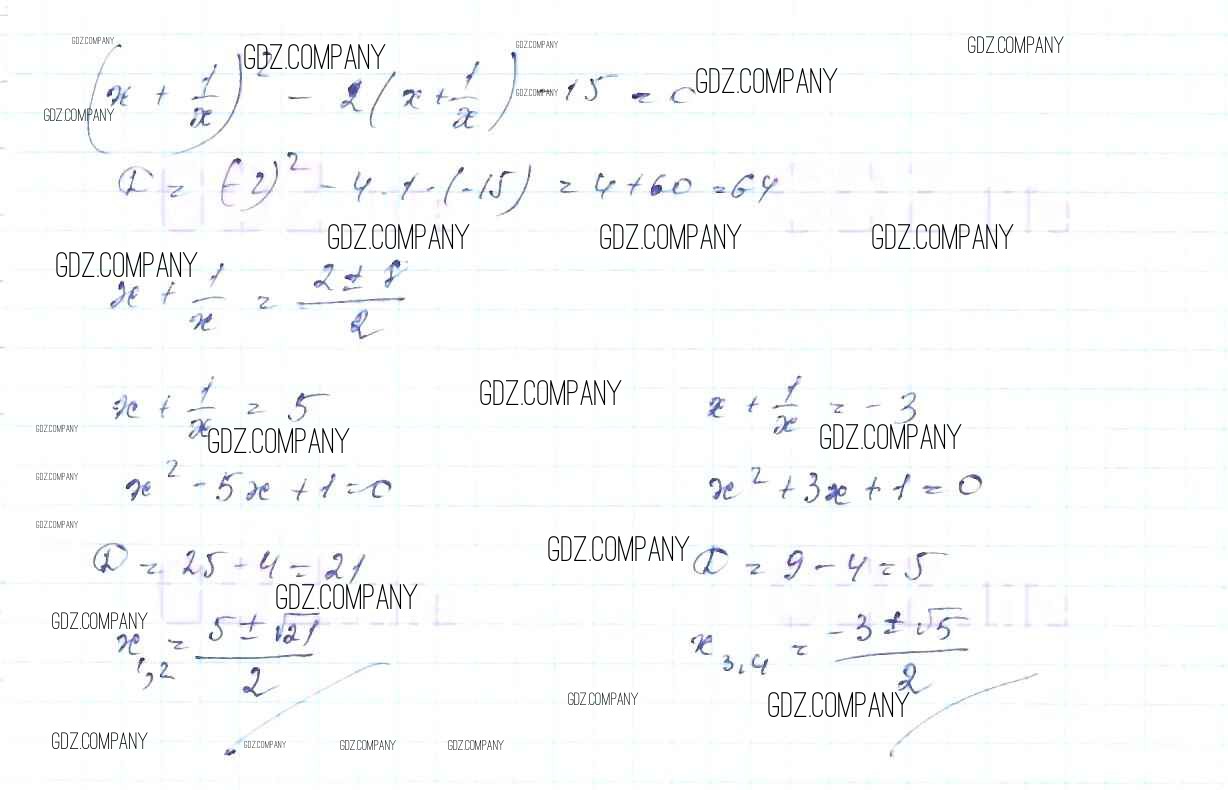 GDZ.COMPANY GDZ.COMPANY GDZ.COMPANY GDZ.COMPANY
(x + 1/x)² - 2(x + 1/x) - 15 = 0 GDZ.COMPANY
GDZ.COMPANY GDZ.COMPANY
D = (-2)² - 4·1·(-15) = 4 + 60 = 64
GDZ.COMPANY GDZ.COMPANY GDZ.COMPANY
GDZ.COMPANY
x + 1/x = (2 ± 8)/2
x + 1/x = 5 GDZ.COMPANY x + 1/x = -3
GDZ.COMPANY GDZ.COMPANY GDZ.COMPANY
GDZ.COMPANY x² - 5x + 1 = 0 x² + 3x + 1 = 0
GDZ.COMPANY
D = 25 - 4 = 21 GDZ.COMPANY D = 9 - 4 = 5
GDZ.COMPANY
GDZ.COMPANY
x₁,₂ = (5 ± √21)/2 x₃,₄ = (-3 ± √5)/2
GDZ.COMPANY GDZ.COMPANY
GDZ.COMPANY GDZ.COMPANY GDZ.COMPANY GDZ.COMPANY